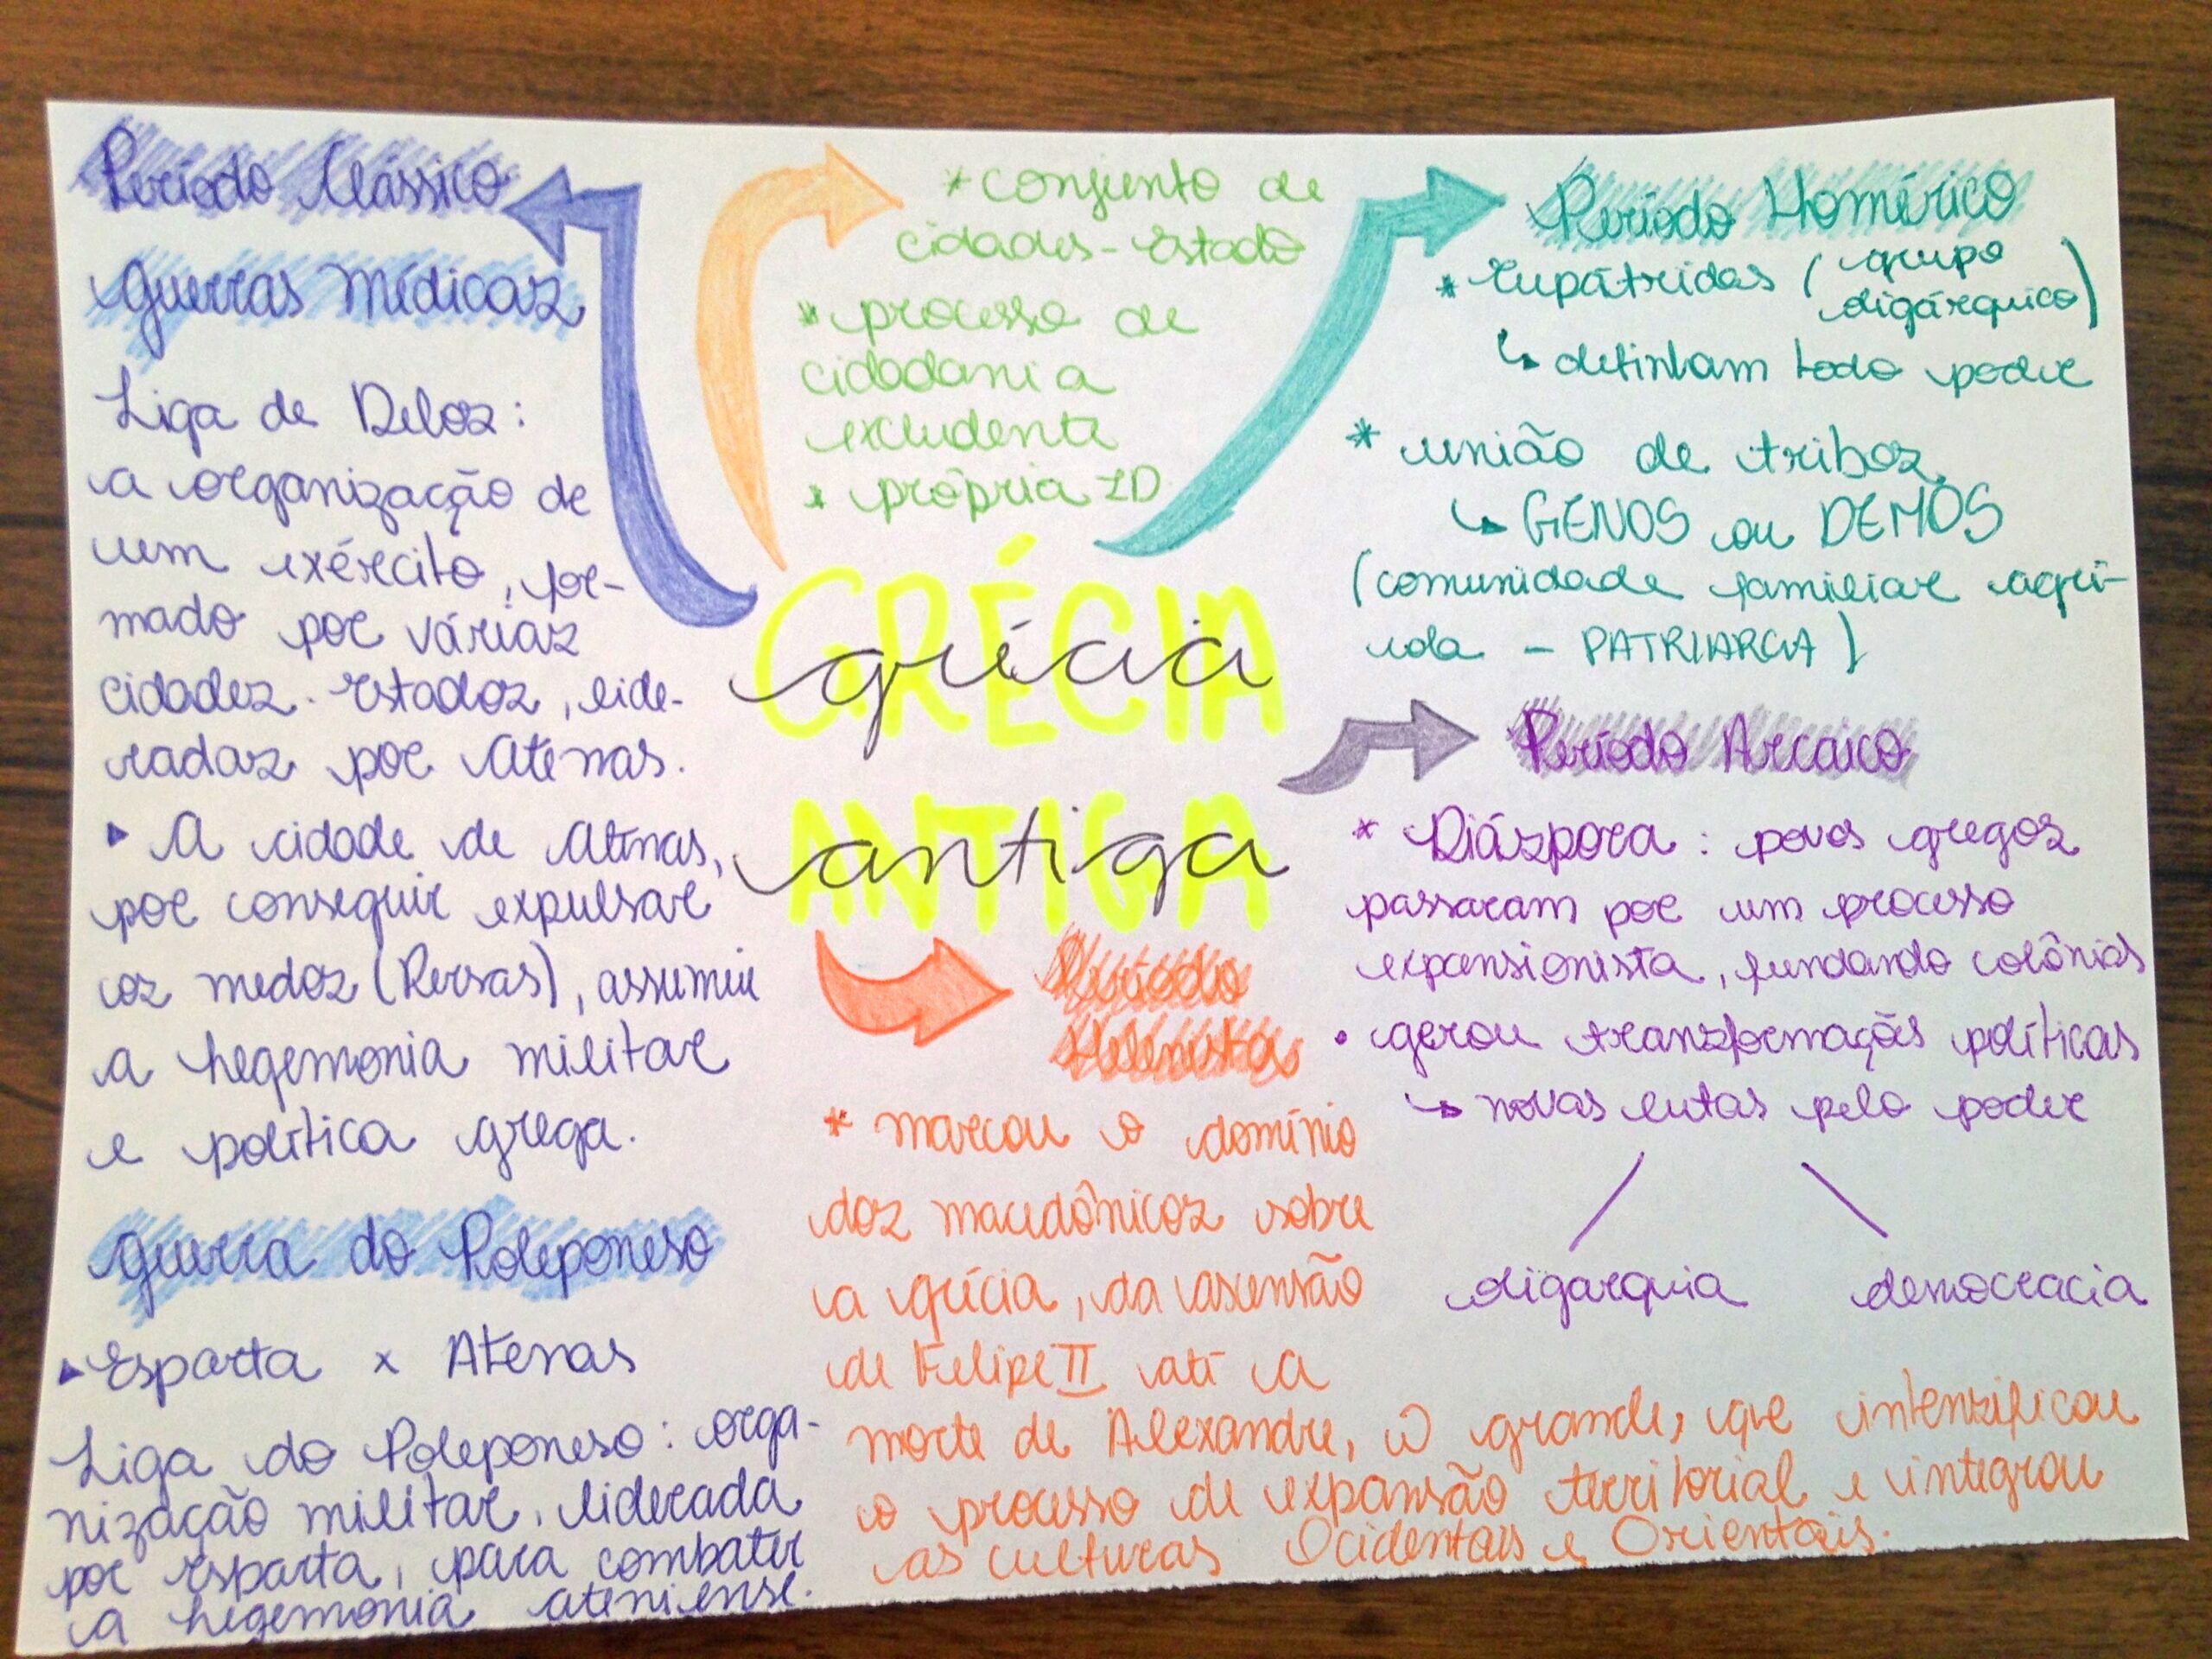 Período Clássico
Guerras Médicas
Liga de Delos:
a organização de
um exército, for-
mado por várias
cidades-Estados, lide-
radas por Atenas.
▸ A cidade de Atenas,
por conseguir expulsar
os medos (Persas), assumiu
a hegemonia militar
e política grega.
Guerra do Poleponeso
▸ Esparta x Atenas
Liga do Poleponeso: orga-
nização militar, liderada
por Esparta, para combater
a hegemonia ateniense.
* conjunto de
cidades-Estado
* processo de
cidadania
excludente
* própria ID
GRÉCIA
grécia
ANTIGA
antiga
Período
Helenista
* marcou o domínio
dos macedônicos sobre
a grécia, da ascensão
de Felipe II até a
morte de Alexandre, O grande, que intensificou
o processo de expansão territorial e integrou
as culturas Ocidentais e Orientais.
Período Homérico
* Eupátridas (grupo
oligárquico)
↳ detinham todo poder
* união de tribos
↳ GENOS ou DEMOS
(comunidade familiar agrí-
cola - PATRIARCA)
Período Arcaico
* Diáspora: povos gregos
passaram por um processo
expansionista, fundando colônias
• gerou transformações políticas
↳ novas lutas pelo poder
oligarquia democracia